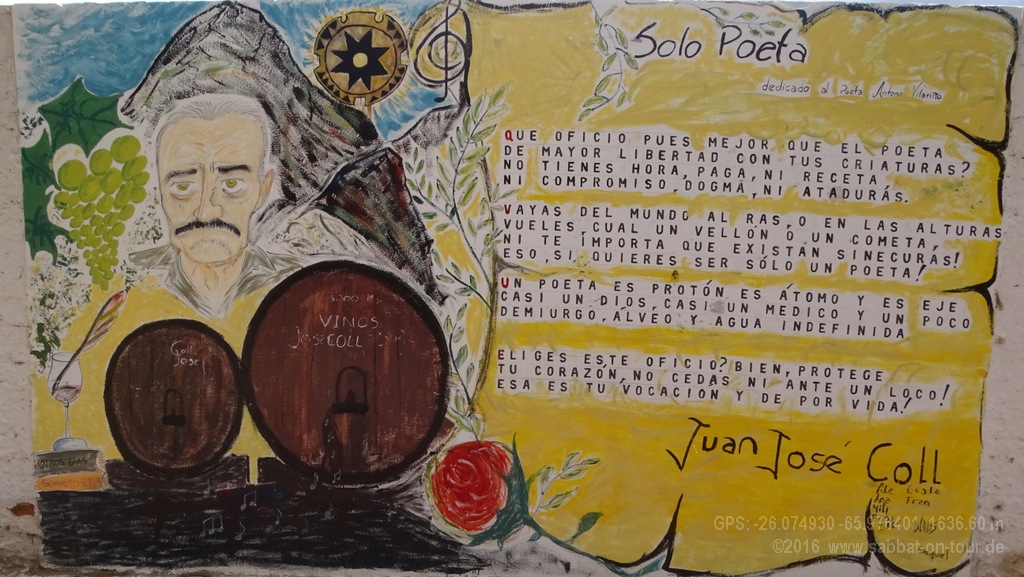 Solo Poeta
dedicado al Poeta Antonio Vilariño
QUE OFICIO PUES MEJOR QUE EL POETA
DE MAYOR LIBERTAD CON TUS CRIATURAS?
NO TIENES HORA, PAGA, NI RECETA,
NI COMPROMISO, DOGMA, NI ATADURÁS.
VAYAS DEL MUNDO AL RAS, O EN LAS ALTURAS
VUELES, CUAL UN VELLÓN O UN COMETA,
NI TE IMPORTA QUE EXISTAN SINECURAS!
ESO, SI QUIERES SER SÓLO UN POETA!
UN POETA ES PROTÓN ES ÁTOMO Y ES EJE
CASI UN DIOS, CASI UN MEDICO Y UN POCO
DEMIURGO, ALVEO Y AGUA INDEFINIDA
ELIGES ESTE OFICIO? BIEN, PROTEGE
TU CORAZÓN, NO CEDAS NI ANTE UN LOCO!
ESA ES TU VOCACIÓN Y DE POR VIDA!
Juan José Coll
VINOS
José COLL
Coll
José
GPS: -26.074930 -65.976401 1636.60 m
©2016 www.sabbat-on-tour.de